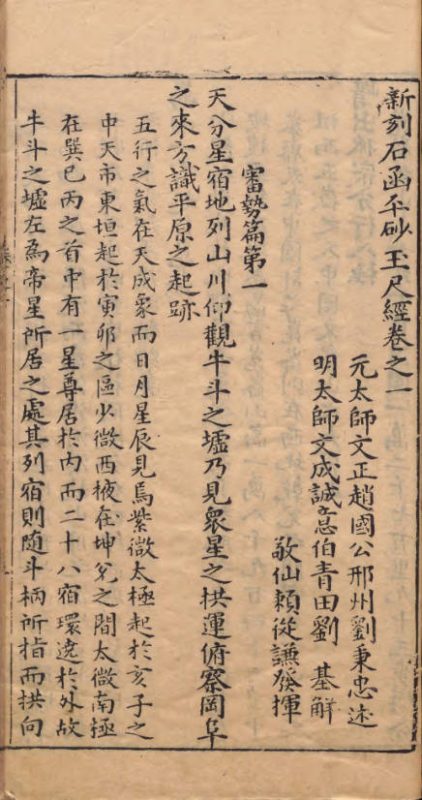 新刻石函平砂玉尺經卷之一
元太師文正趙國公邢州劉秉忠述
明太師文成誠意伯青田劉 基解
敬仙賴從謙發揮
審勢篇第一
天分星宿地列山川仰觀牛斗之墟乃見衆星之拱運俯察岡阜
之來方識平原之起跡
五行之氣在天成象而日月星辰見焉紫微太極起於亥子之
中天市東垣起於寅卯之區少微西掖在坤兌之間太微南極
在巽巳丙之首中有一星尊居於内而二十八宿環遶於外故
牛斗之墟左爲帝星所居之處其列宿則随斗柄所指而拱向